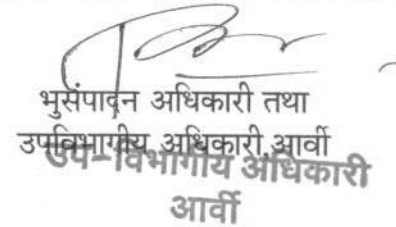 भुसंपादन अधिकारी तथा
उपविभागीय अधिकारी,आर्वी
उप-विभागीय अधिकारी
आर्वी